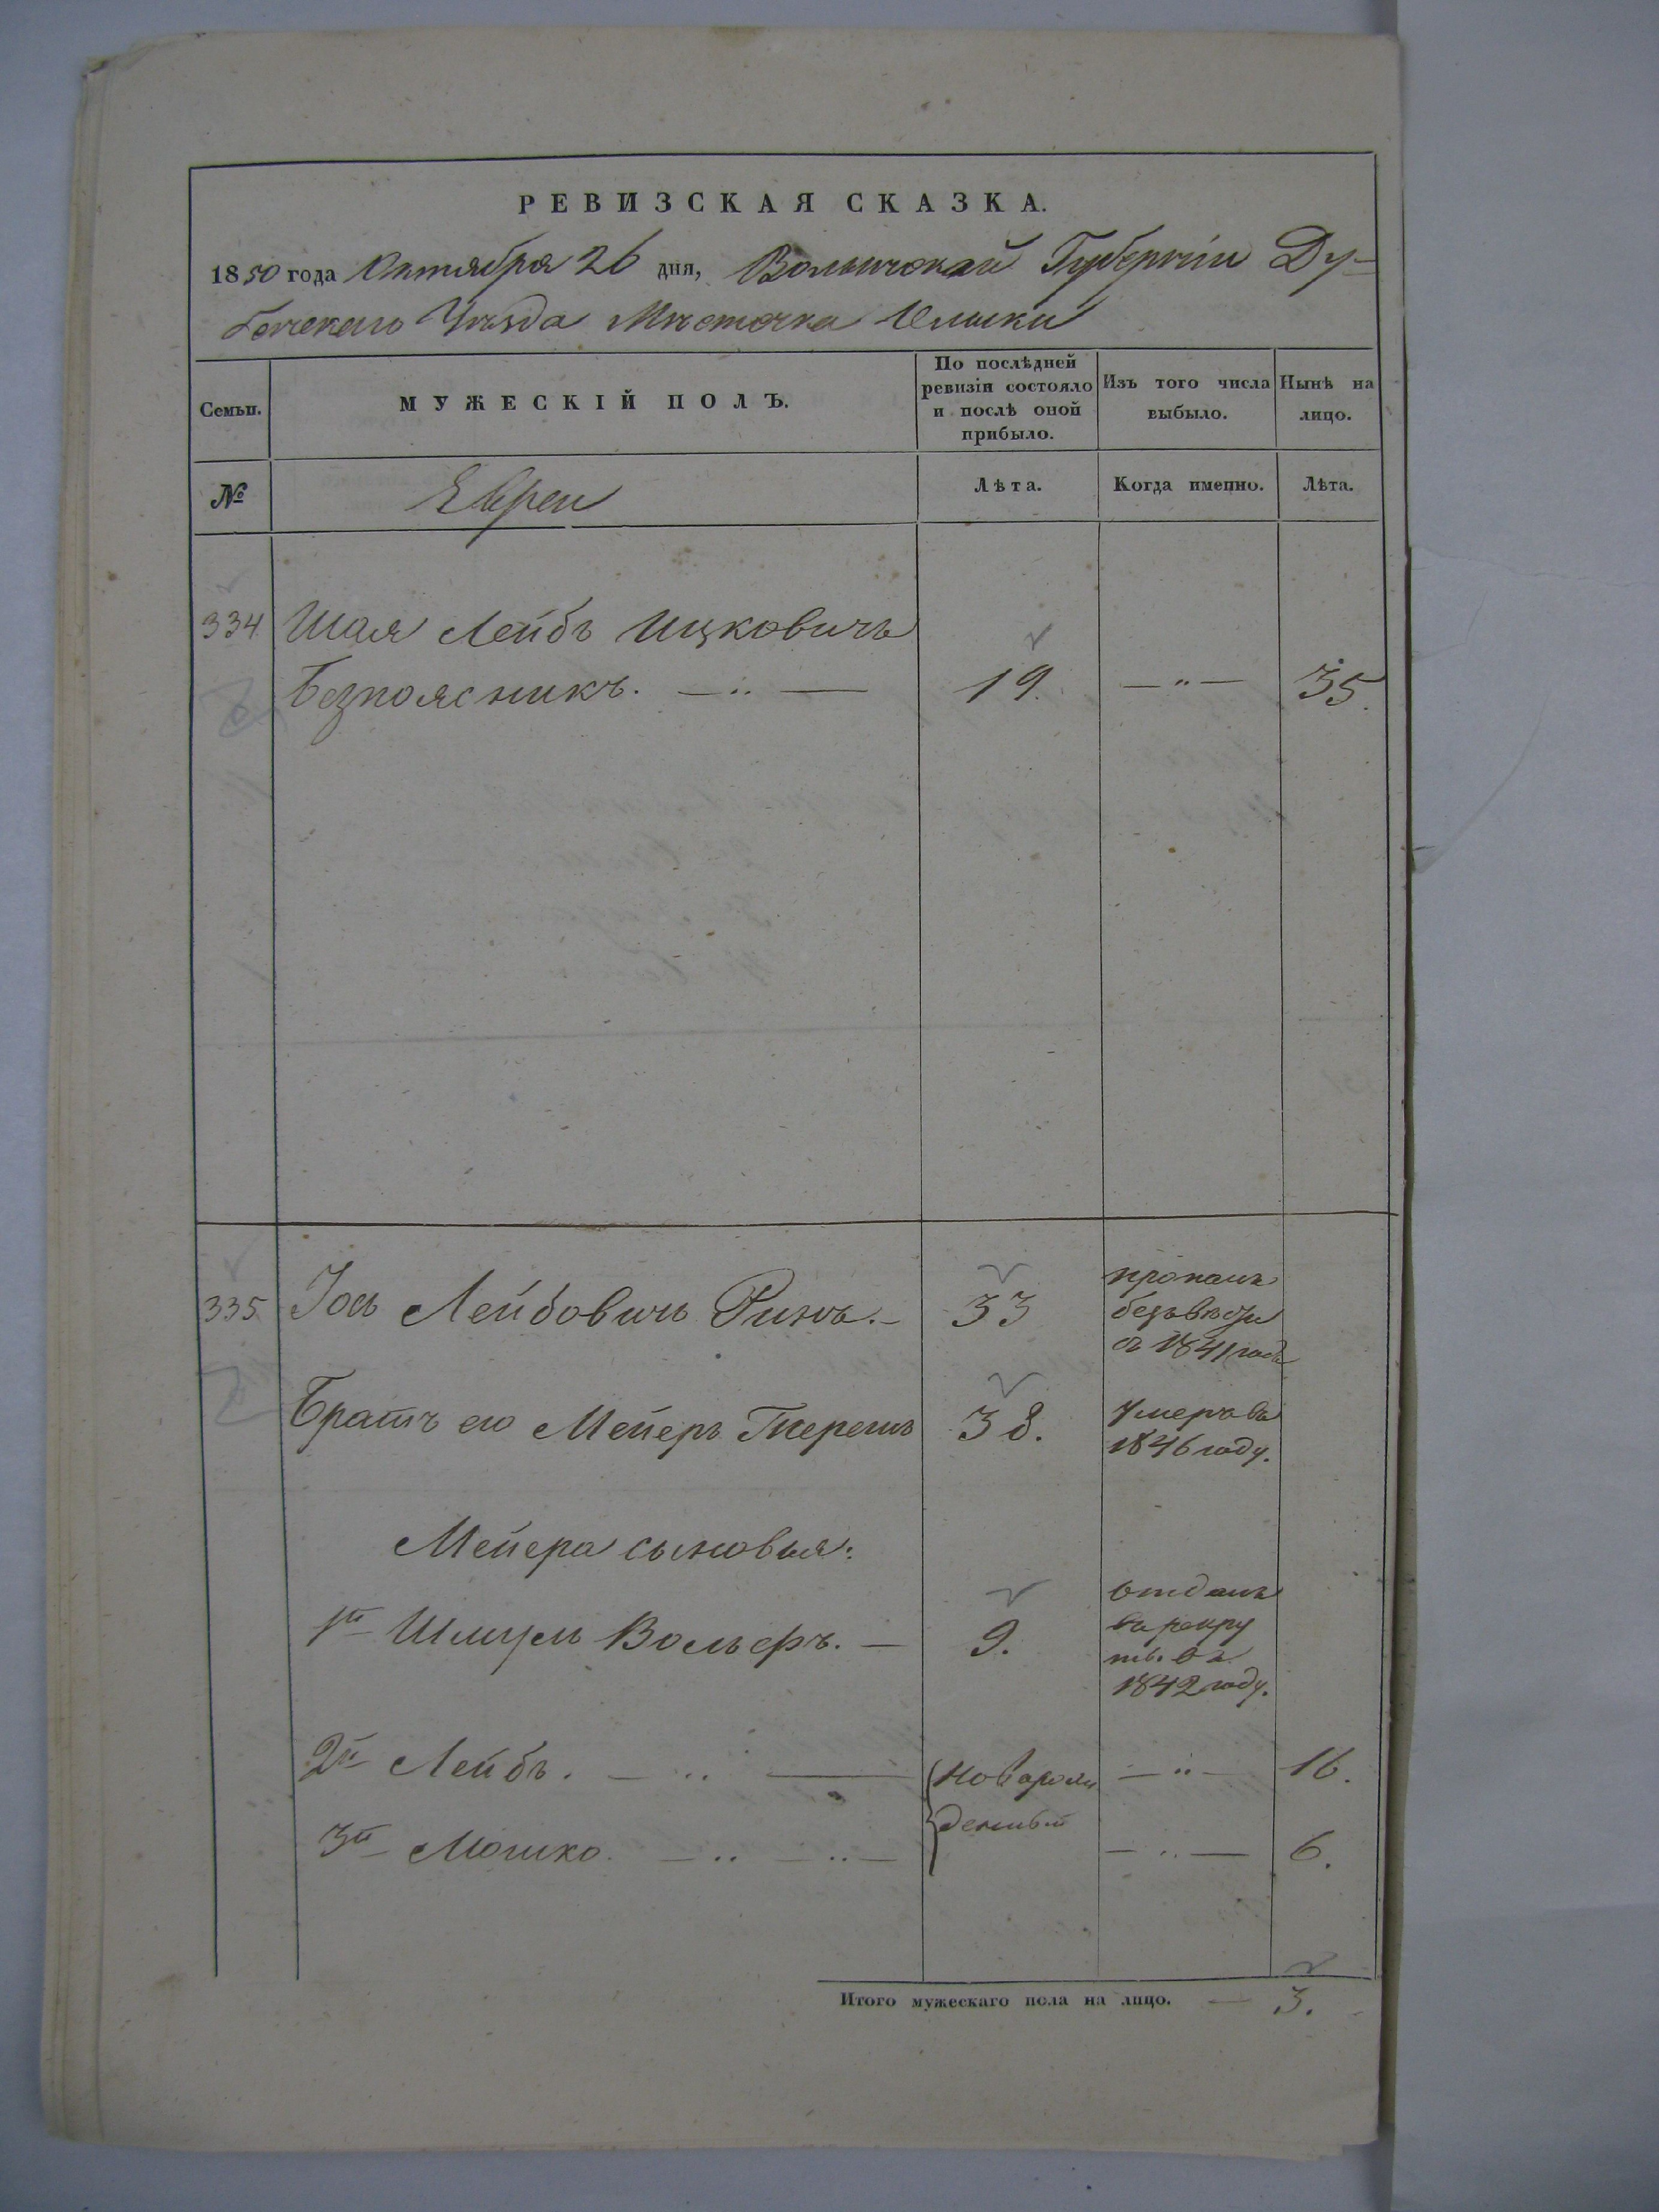 РЕВИЗСКАЯ СКАЗКА.
1850 года Октября 26 дня, Волынской Губернiи Ду-
бенскаго Уѣзда Мѣстечка Олыки
Семьи.
МУЖЕСКІЙ ПОЛЪ.
По послѣдней ревизіи состояло и послѣ оной прибыло.
Изъ того числа выбыло.
Нынѣ на лицо.
№
Евреи
Лѣта.
Когда именно.
Лѣта.
334 Шая Лейбъ Ицковичъ
Безпоясникъ. — „ — 19. — „ — 35.
335 Іось Лейбовичъ Ринъ. — 33
пропалъ
безъ вѣсти
съ 1841 года
Братъ его Мейеръ Гнерешъ 38.
умеръ въ
1846 году.
Мейера сыновья:
1й Шмуль Вольфъ. — 9.
отданъ
въ рекру
ты въ
1842 году.
2й Лейбъ. — „ — новорож — „ — 16.
денный
3й Мошко. — „ — „ — — „ — 6.
Итого мужескаго пола на лицо. — 3.